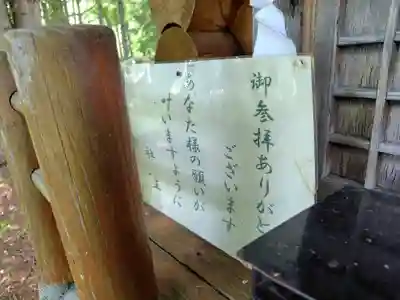 御参拝ありがと
ございます
あなた様の願いが
叶いますように